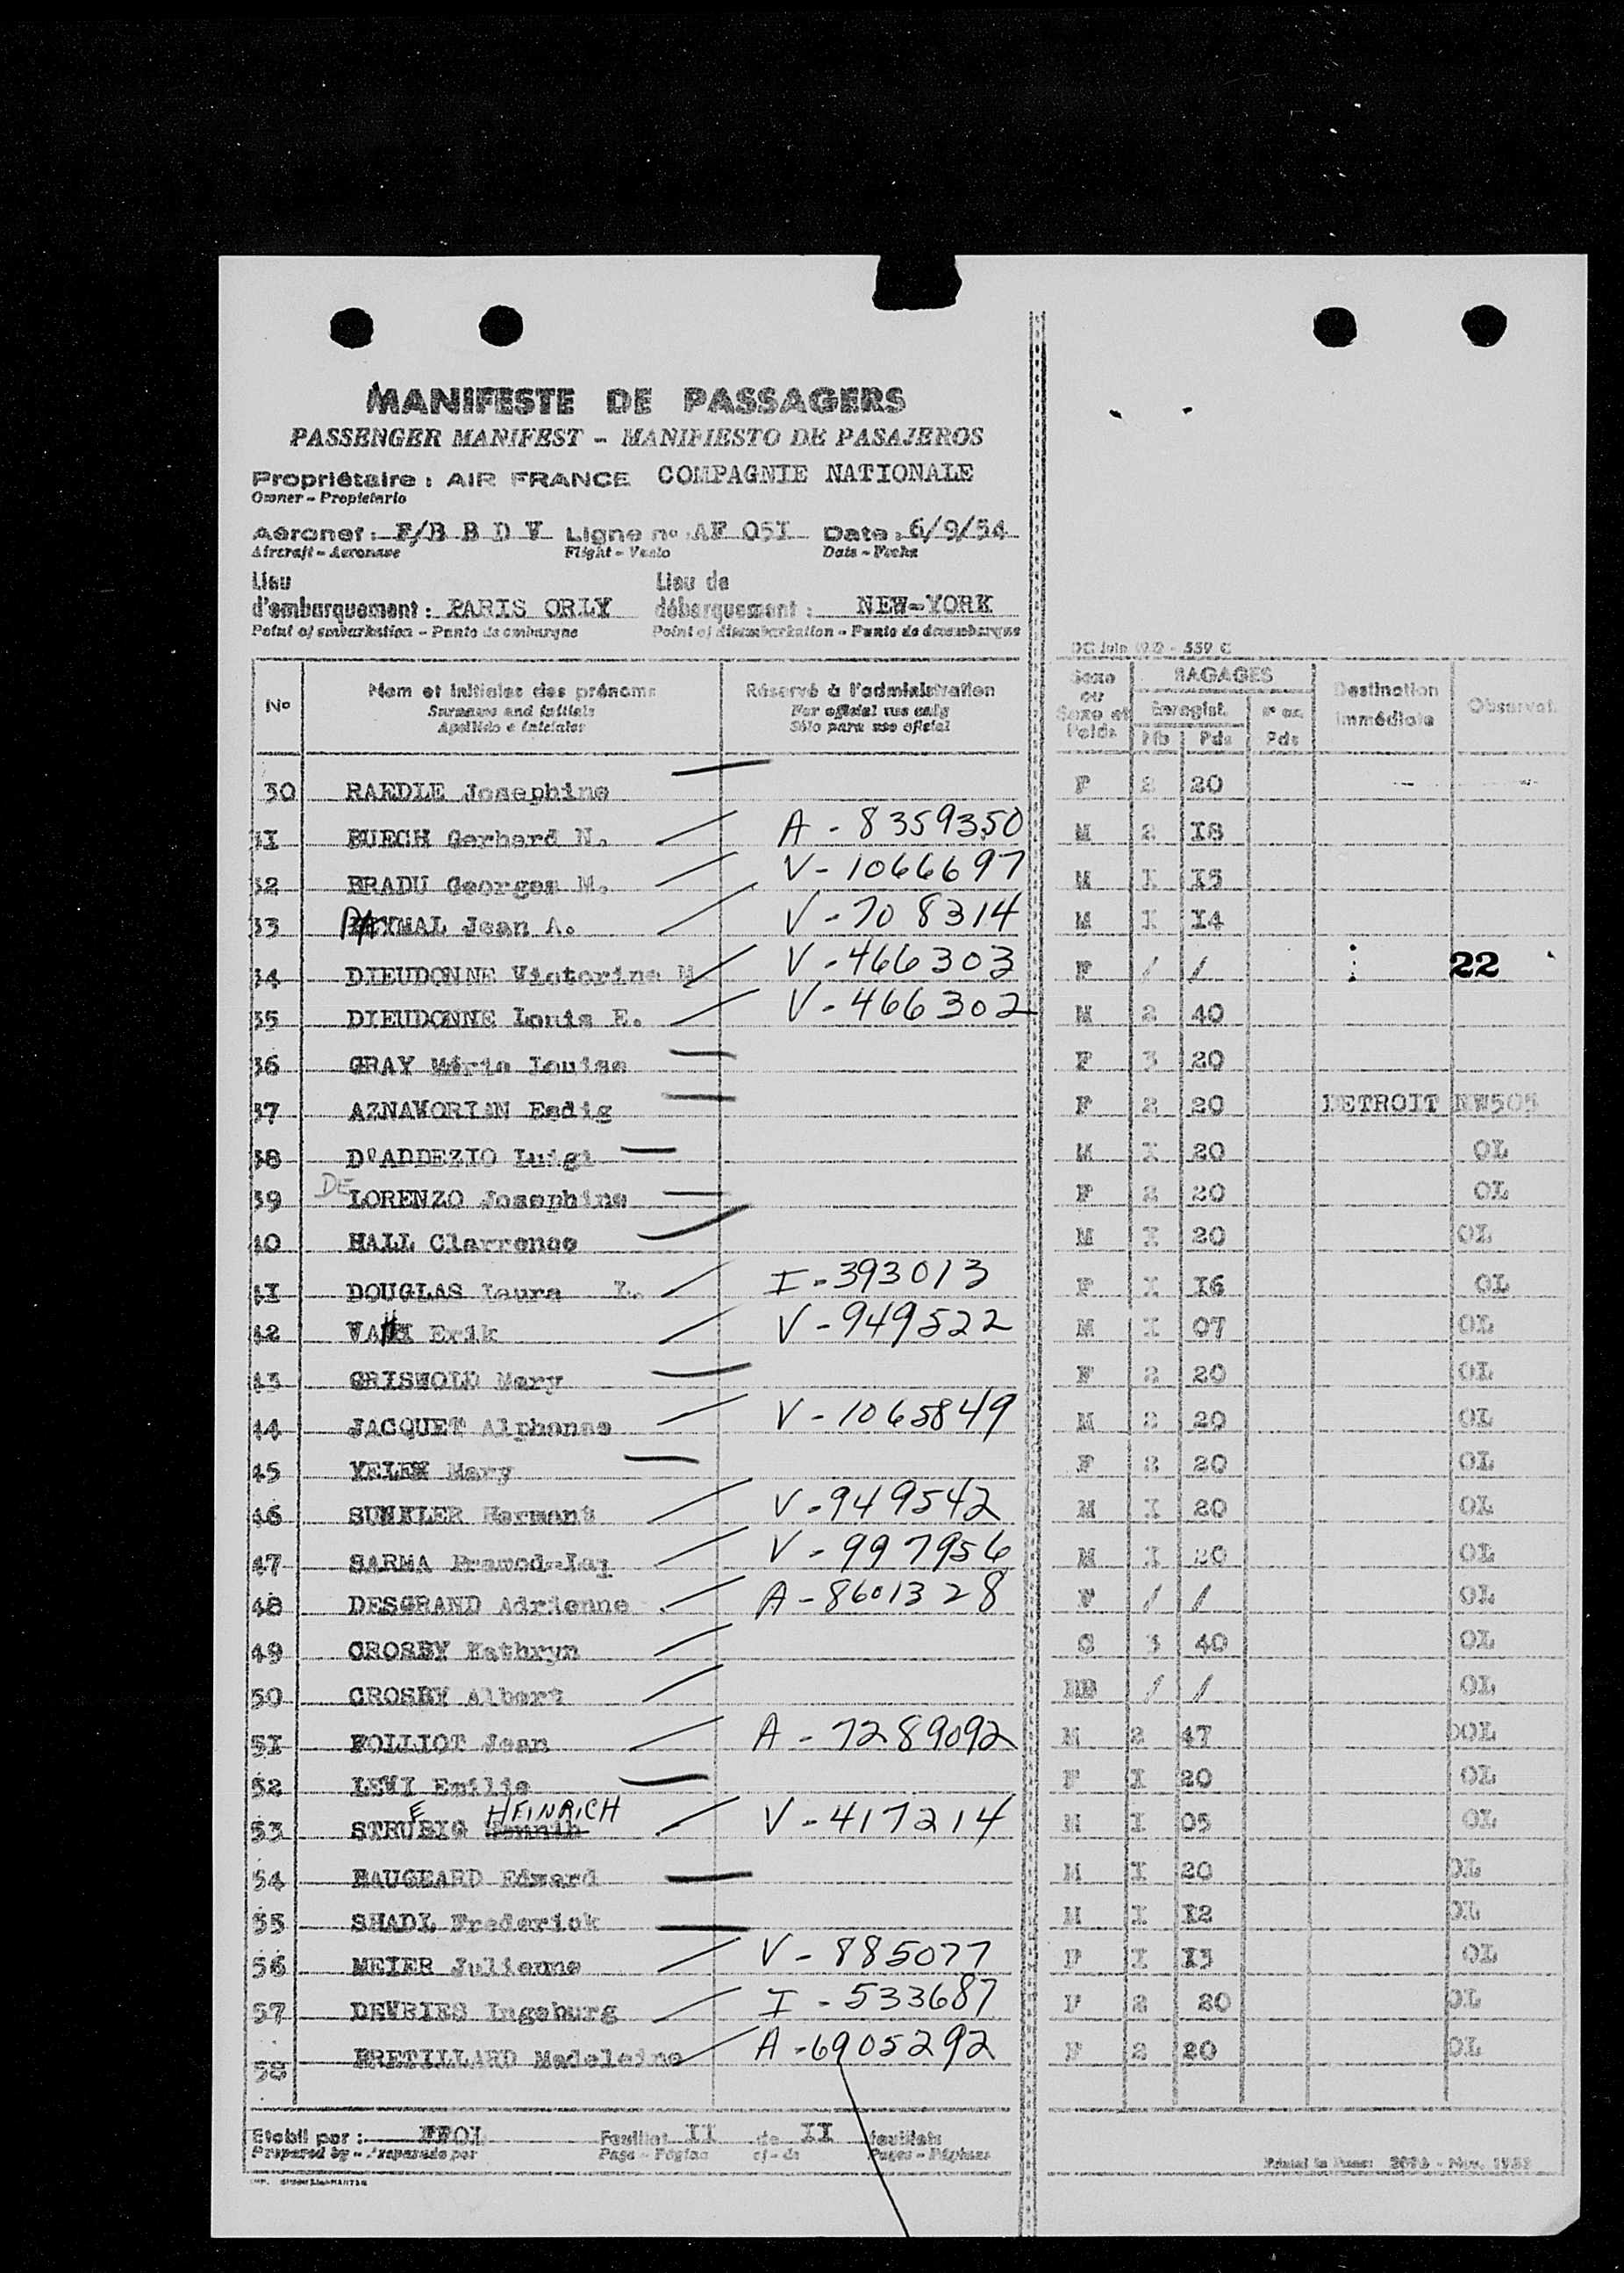 MANIFESTE DE PASSAGERS
PASSENGER MANIFEST - MANIFIESTO DE PASAJEROS
Propriétaire : AIR FRANCE COMPAGNIE NATIONALE
Owner - Propietario
Aéronef : F/B B D V Ligne no AF 05I Date : 6/9/54
Aircraft - Aeronave Flight - Vuelo Date - Fecha
Lieu Lieu de
d'embarquement : PARIS ORLY débarquement : NEW-YORK
Point of embarkation - Punto de embarque Point of disembarkation - Punto de desembarque
559 C
No Nom et initiales des prénoms Réservé à l'administration Sexe ou Sexe et Poids BAGAGES Destination immédiate Observat.
Surname and initials For official use only Enregist.
Apellido e iniciales Sólo para uso oficial Nb Pds Pds
30 RAEDLE Josephine F 2 20
31 RUECH Gerhard N. A - 8359350 M 2 I8
32 BRADU Georges M. V - 1066697 M I I5
33 PAYMAL Jean A. V - 708314 M I I4
34 DIEUDONNE Victorine M V - 466303 F / / 22
35 DIEUDONNE Louis E. V - 466302 M 2 40
36 GRAY Marie Louise F 3 20
37 AZNAVORIAN Esdig F 2 20 DETROIT NW505
38 D'ADDEZIO Luigi M I 20 OL
39 DE LORENZO Josephine F 2 20 OL
40 HALL Clarrence M I 20 OL
4I DOUGLAS Laura L. I - 393013 F I I6 OL
42 Erik V - 949522 M I 07 OL
43 GRISWOLD Mary F 2 20 OL
44 JACQUET Alphonse V - 1065849 M 2 20 OL
45 Mary F 2 20 OL
46 V - 949542 M I 20 OL
47 SARMA V - 997956 M I 20 OL
48 DESGRAND Adrienne A - 8601328 F / / OL
49 CROSBY Kathryn 3 40 OL
50 CROSBY Albert BB / / OL
5I FOLLIOT Jean A - 7289092 M 2 47 OL
52 LEWI Emilie F I 20 OL
53 STRUEBIG HEINRICH V - 417214 M I 05 OL
54 BAUGEARD Edward M I 20 OL
55 SHADL Frederick M I I2 OL
56 MEIER Julienne V - 885077 F I I3 OL
57 DEVRIES Ingeburg I - 533687 F 2 20 OL
58 BRETILLARD Madeleine A - 6905292 F 2 20 OL
Etabli par : Feuillet II de II feuillets
Prepared by - Preparado por Page - Página of - de Pages - Páginas